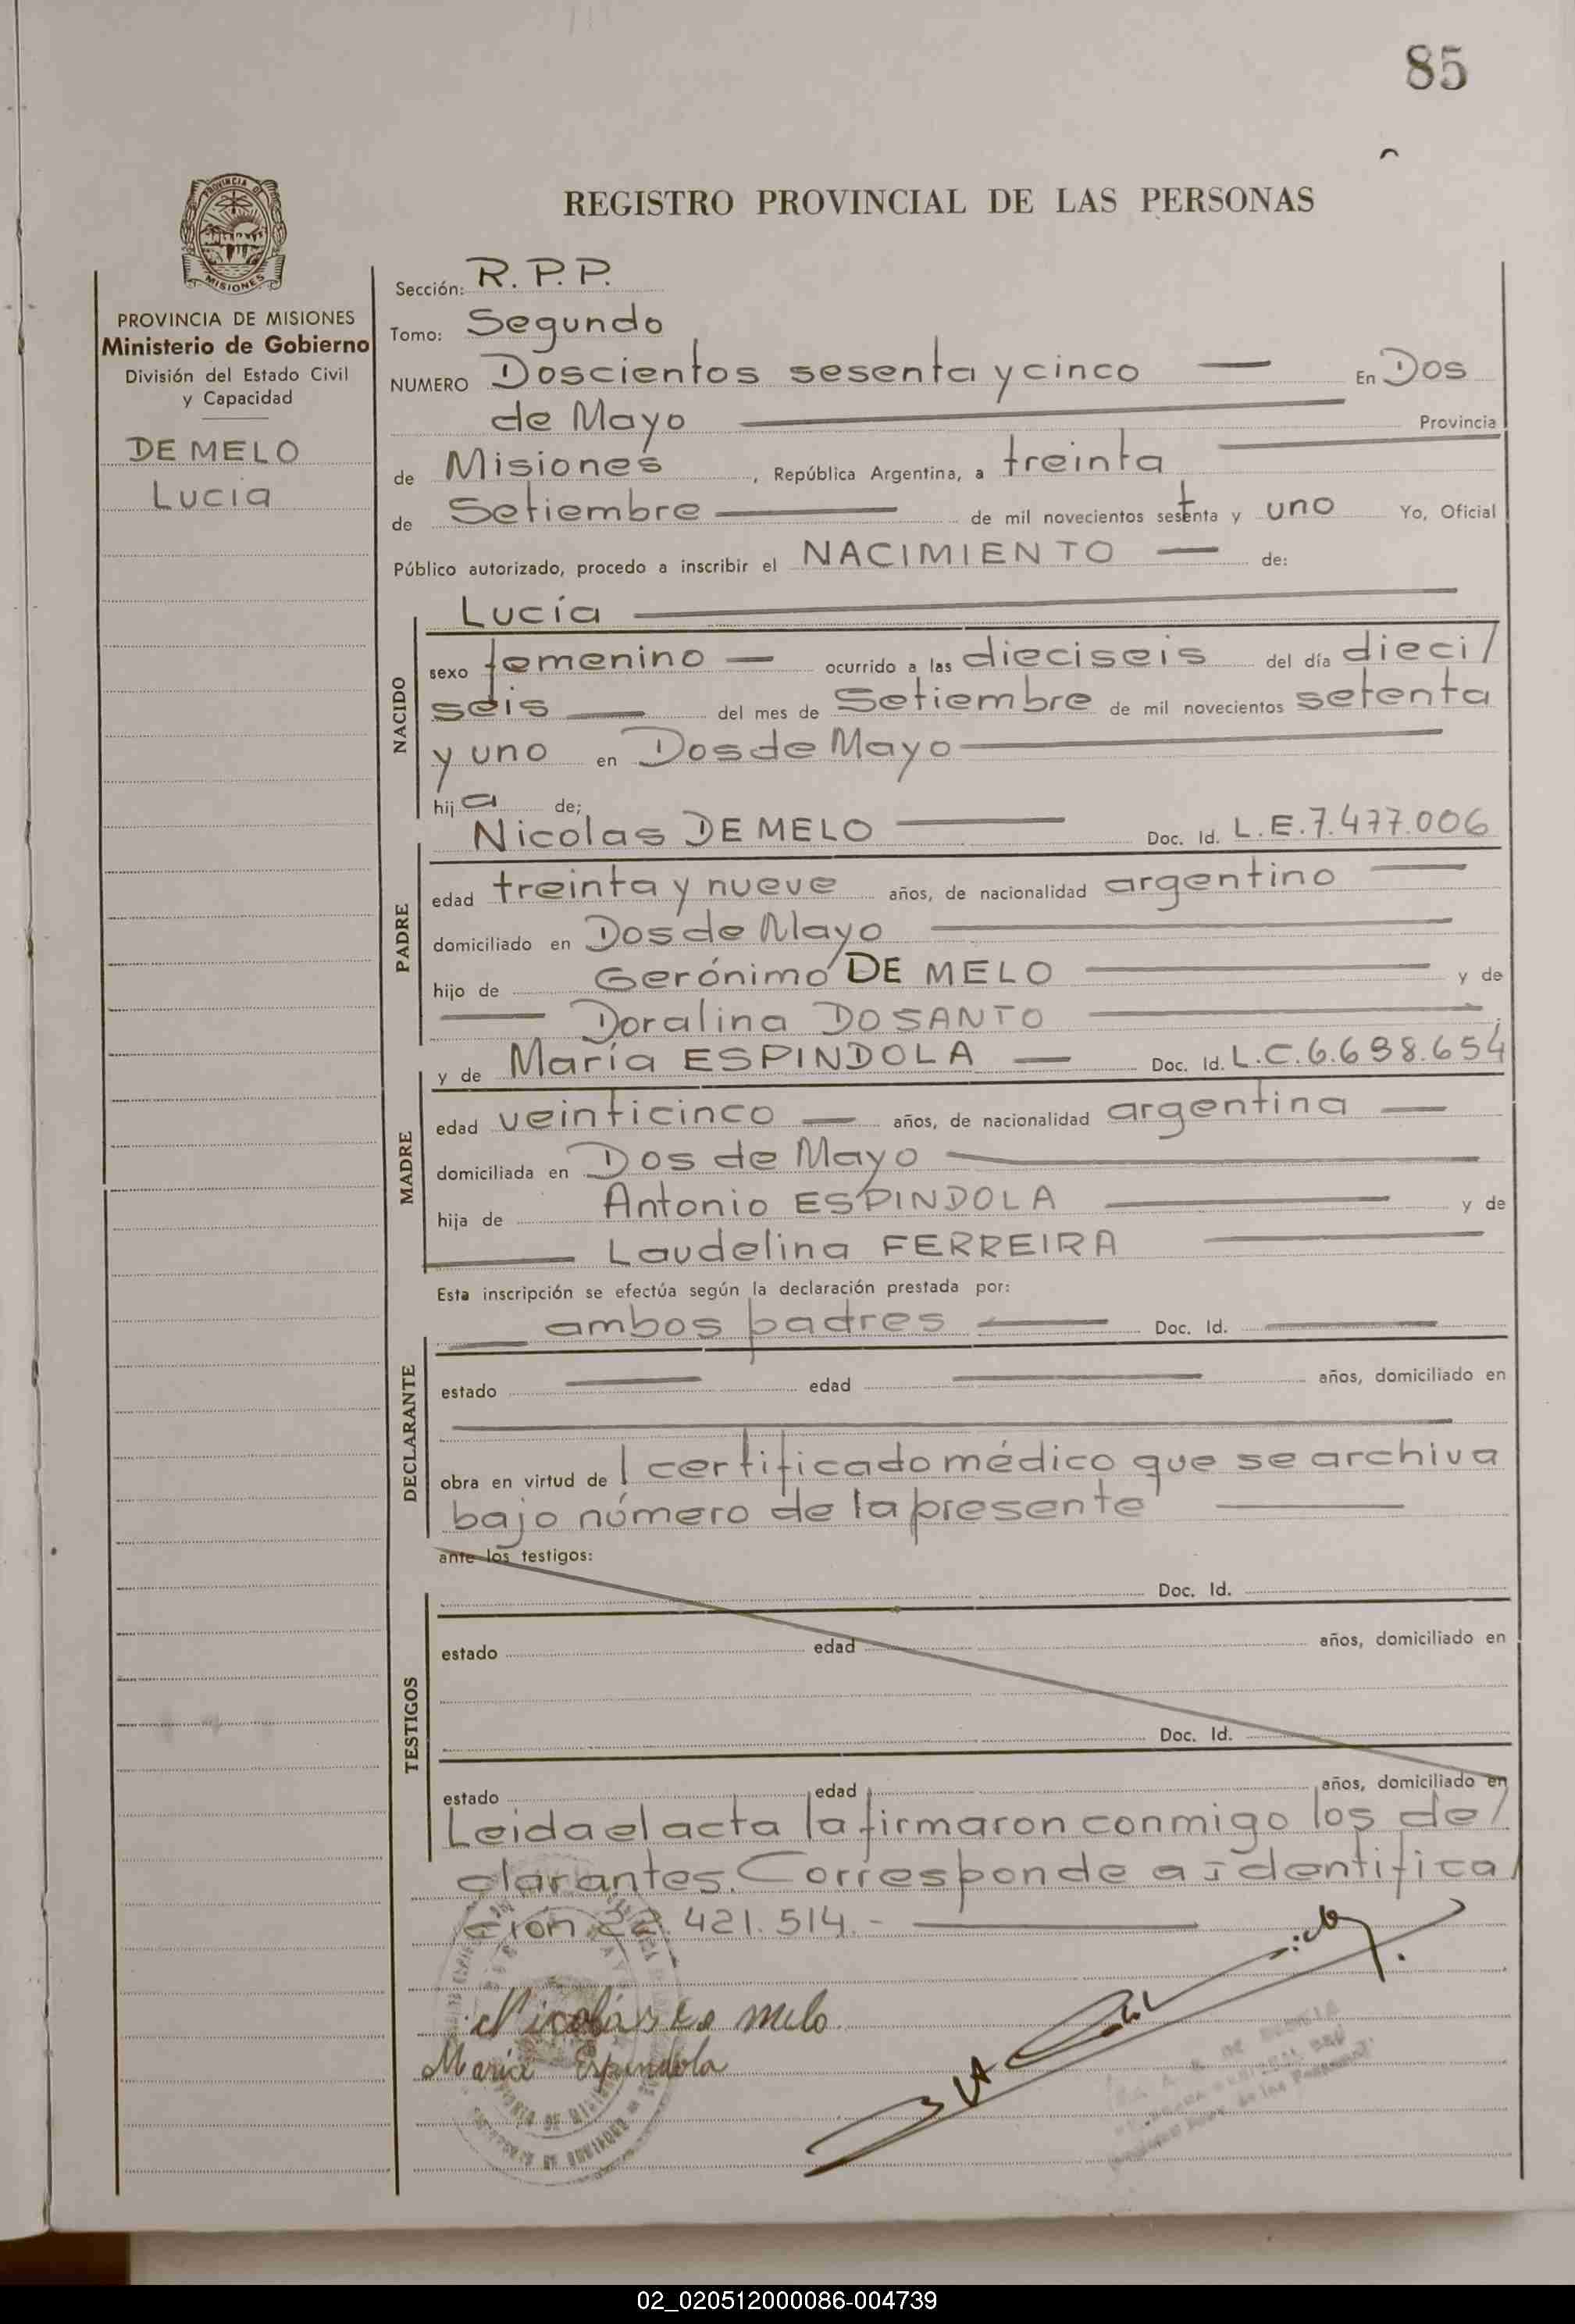 85
REGISTRO PROVINCIAL DE LAS PERSONAS
PROVINCIA DE
MISIONES
PROVINCIA DE MISIONES
Ministerio de Gobierno
División del Estado Civil
y Capacidad
DE MELO
Lucia
Sección: R.P.P.
Tomo: Segundo
NUMERO Doscientos sesenta y cinco — En Dos
de Mayo — Provincia
de Misiones, República Argentina, a treinta —
de Setiembre — de mil novecientos setenta y uno Yo, Oficial
Público autorizado, procedo a inscribir el NACIMIENTO — de:
Lucía —
NACIDO
sexo femenino — ocurrido a las dieciseis del día dieci/
seis — del mes de Setiembre de mil novecientos setenta
y uno en Dos de Mayo —
hija de;
Nicolas DE MELO — Doc. Id. L.E.7.477.006
PADRE
edad treinta y nueve años, de nacionalidad argentino —
domiciliado en Dos de Mayo —
hijo de Gerónimo DE MELO — y de
— Doralina DOSANTO —
y de María ESPINDOLA — Doc. Id. L.C.6.698.654
MADRE
edad veinticinco — años, de nacionalidad argentina —
domiciliada en Dos de Mayo —
hija de Antonio ESPINDOLA — y de
— Laudelina FERREIRA —
Esta inscripción se efectúa según la declaración prestada por:
— ambos padres — Doc. Id. —
DECLARANTE
estado — edad — años, domiciliado en
—
obra en virtud de l certificado médico que se archiva
bajo número de la presente —
ante los testigos:
Doc. Id.
TESTIGOS
estado edad años, domiciliado en
Doc. Id.
estado edad años, domiciliado en
Leida el acta la firmaron conmigo los de/
clarantes. Corresponde a identifica/
cion 22.421.514.- —
Nicolás de melo
Maria Espindola
02_020512000086-004739